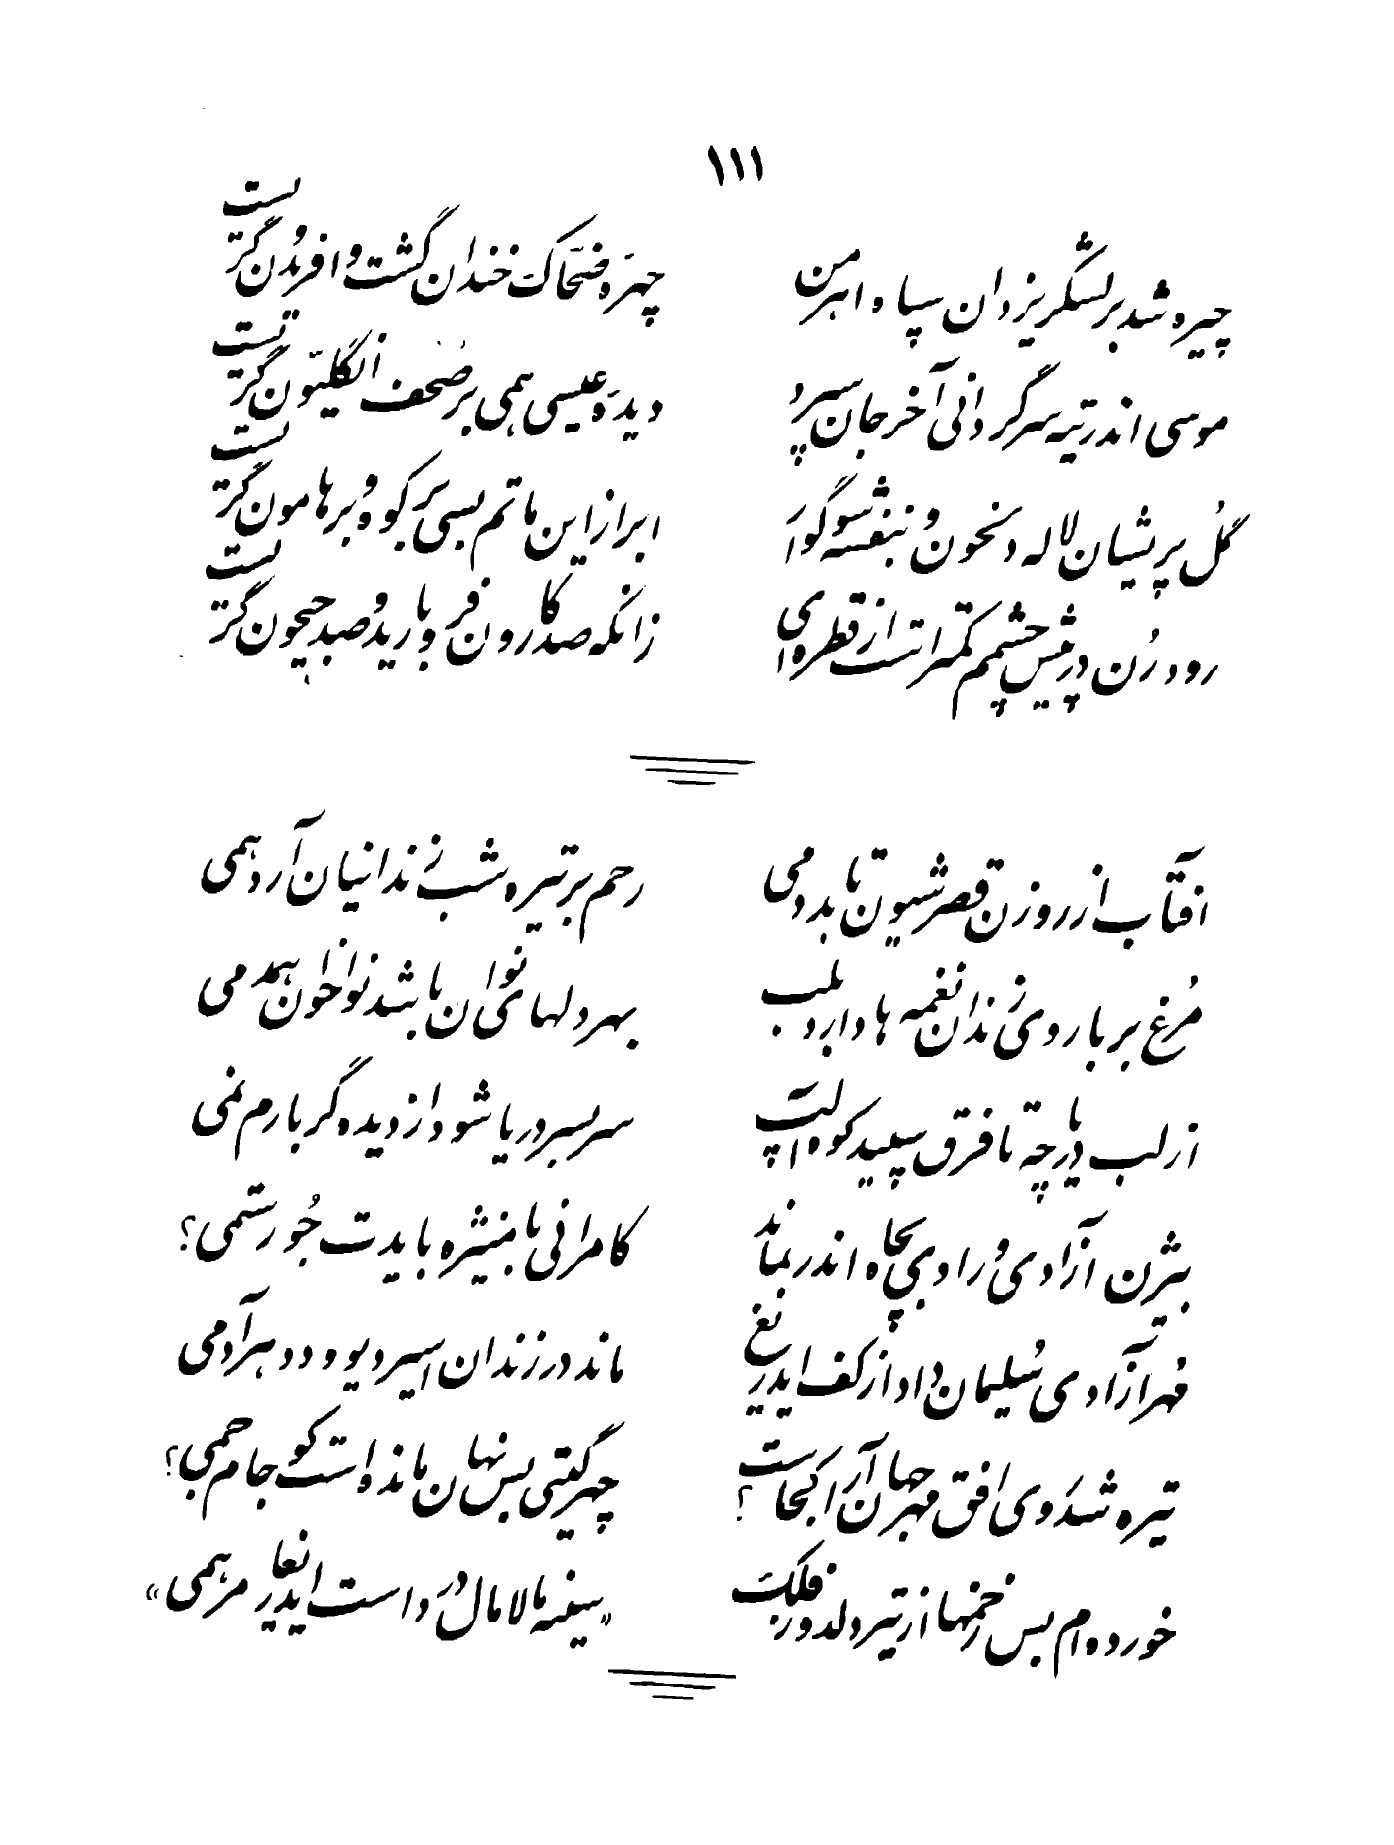 ۱۱۱
چیره شد بر لشگر یزدان سپاه اهرمن
چهرهٔ ضحّاک خندان گشت و افریدُن گریست
موسی اندر تیه سرگردانی آخر جان سپرد
دیدهٔ عیسی همی بر صُحف انگلیون گریست
گُل پریشان لاله دلخون و بنفشه سوگوار
ابر از این ماتم بسی بر کوه و بر هامون گریست
رود رُن در پیش چشمم کمتر است از قطره‌ای
زانکه صد کارون فرو بارید و صد جیحون گریست
آفتاب از روزن قصر شیون تابد دمی
رحم بر تیره شب زندانیان آرد همی
مُرغ بر باروی زندان نغمه‌ها دارد بلب
بهر دلهای نوان باشد نواخوان همدمی
از لب دریاچه تا فرق سپید کوه آلپ
سربسر دریا شود از دیده گر بارم نمی
بیژن آزادی و رادی بچاه اندر بماند
کامرانی با منیژه بایدت جُو رستمی؟
مُهر آزادی سُلیمان داد از کف ایدریغ
ماند در زندان اسیر دیو و دد هر آدمی
تیره شد َ وی افق مهر جهان آرا کجاست؟
چهر گیتی بس نهان مانده است کو جام جمی؟
خورده‌ام بس زخمها از تیر دلدوز فلک
«سینه مالامال درد است ایدریغا مرهمی»